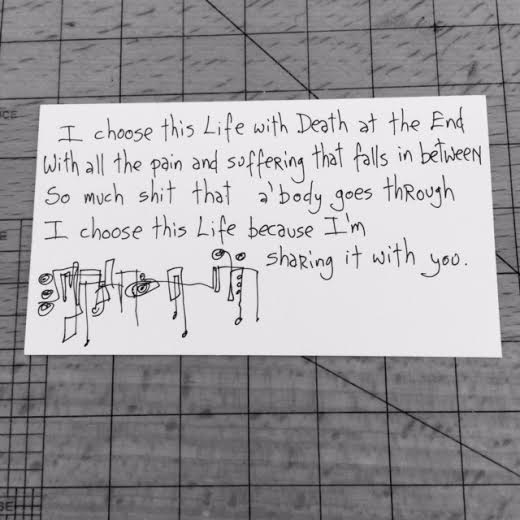 I choose this Life with Death at the End
With all the pain and suffering that falls in between
So much shit that a'body goes through
I choose this Life because I'm
sharing it with you.